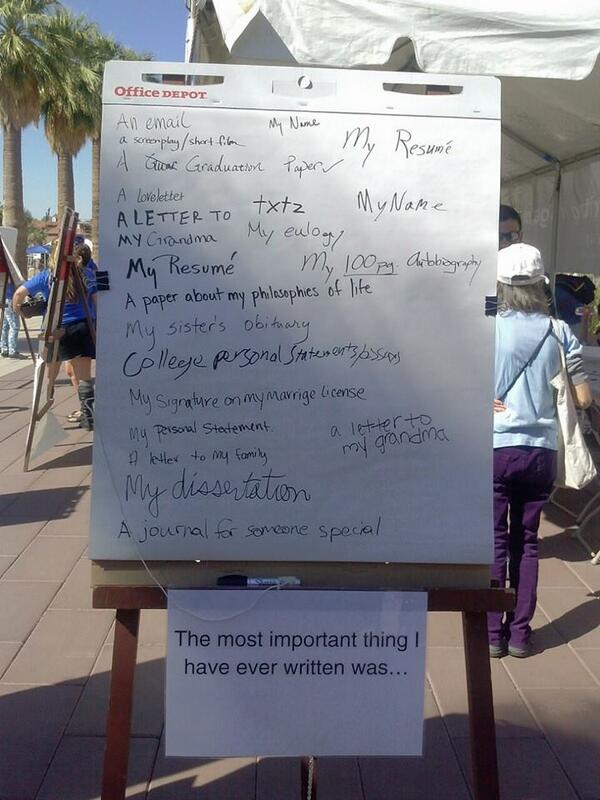 Office DEPOT
An email My Name
a screenplay/short film My Resumé
A Graduation Paper
A loveletter txtz My Name
A LETTER TO
MY Grandma My eulogy
My Resumé My 100 pg. Autobiography
A paper about my philosophies of life
My sister's obituary
College personal Statements/essays
My Signature on my marrige license
My Personal Statement. a letter to
my grandma
A letter to my family
My dissertation
A journal for someone special
The most important thing I
have ever written was...